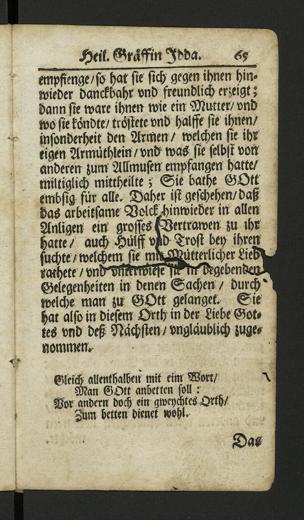 Heil. Gräffin Idda. 65
empfienge/so hat sie sich gegen ihnen hin-
wieder danckbahr vnd freundlich erzeigt;
dann sie ware ihnen wie ein Mutter/vnd
wo sie köndte/tröstete vnd halffe sie ihnen/
insonderheit den Armen/ welchen sie ihr
eigen Armüthlein/vnd was sie selbst von
anderen zum Allmusen empfangen hatte/
miltiglich mittheilte; Sie bathe GOtt
embsig für alle. Daher ist geschehen/daß
das arbeitsame Volck hinwieder in allen
Anligen ein grosses Vertrawen zu ihr
hatte/ auch Hülff vnd Trost bey ihren
suchte/welchem sie mit Mütterlicher Lieb
rathete/vnd vnterwiese sie in begebenden
Gelegenheiten in denen Sachen/ durch
welche man zu GOtt gelanget. Sie
hat also in diesem Orth in der Liebe Got-
tes vnd deß Nächsten/vnglaublich zuge-
nommen.
Gleich allenthalben mit eim Wort/
Man GOtt anbetten soll:
Vor andern doch ein geweychtes Orth/
Zum betten dienet wohl.
Das